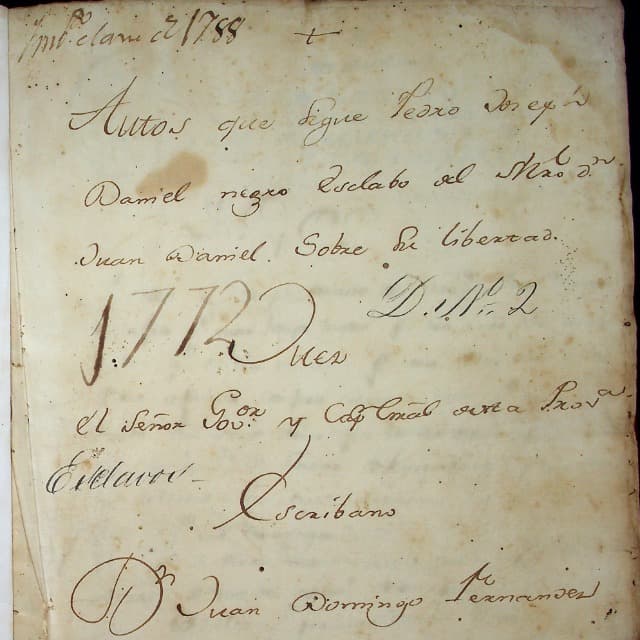 1788
+
Autos que sigue Pedro Joseph
Daniel negro Esclabo del Mro. dn.
Juan Daniel. Sobre su libertad.
1772
D. No. 2
Juez
el Señor Govor. y Cap. Gral de esta Prova.
Esclavos
Escribano
Dn. Juan Domingo Fernandez